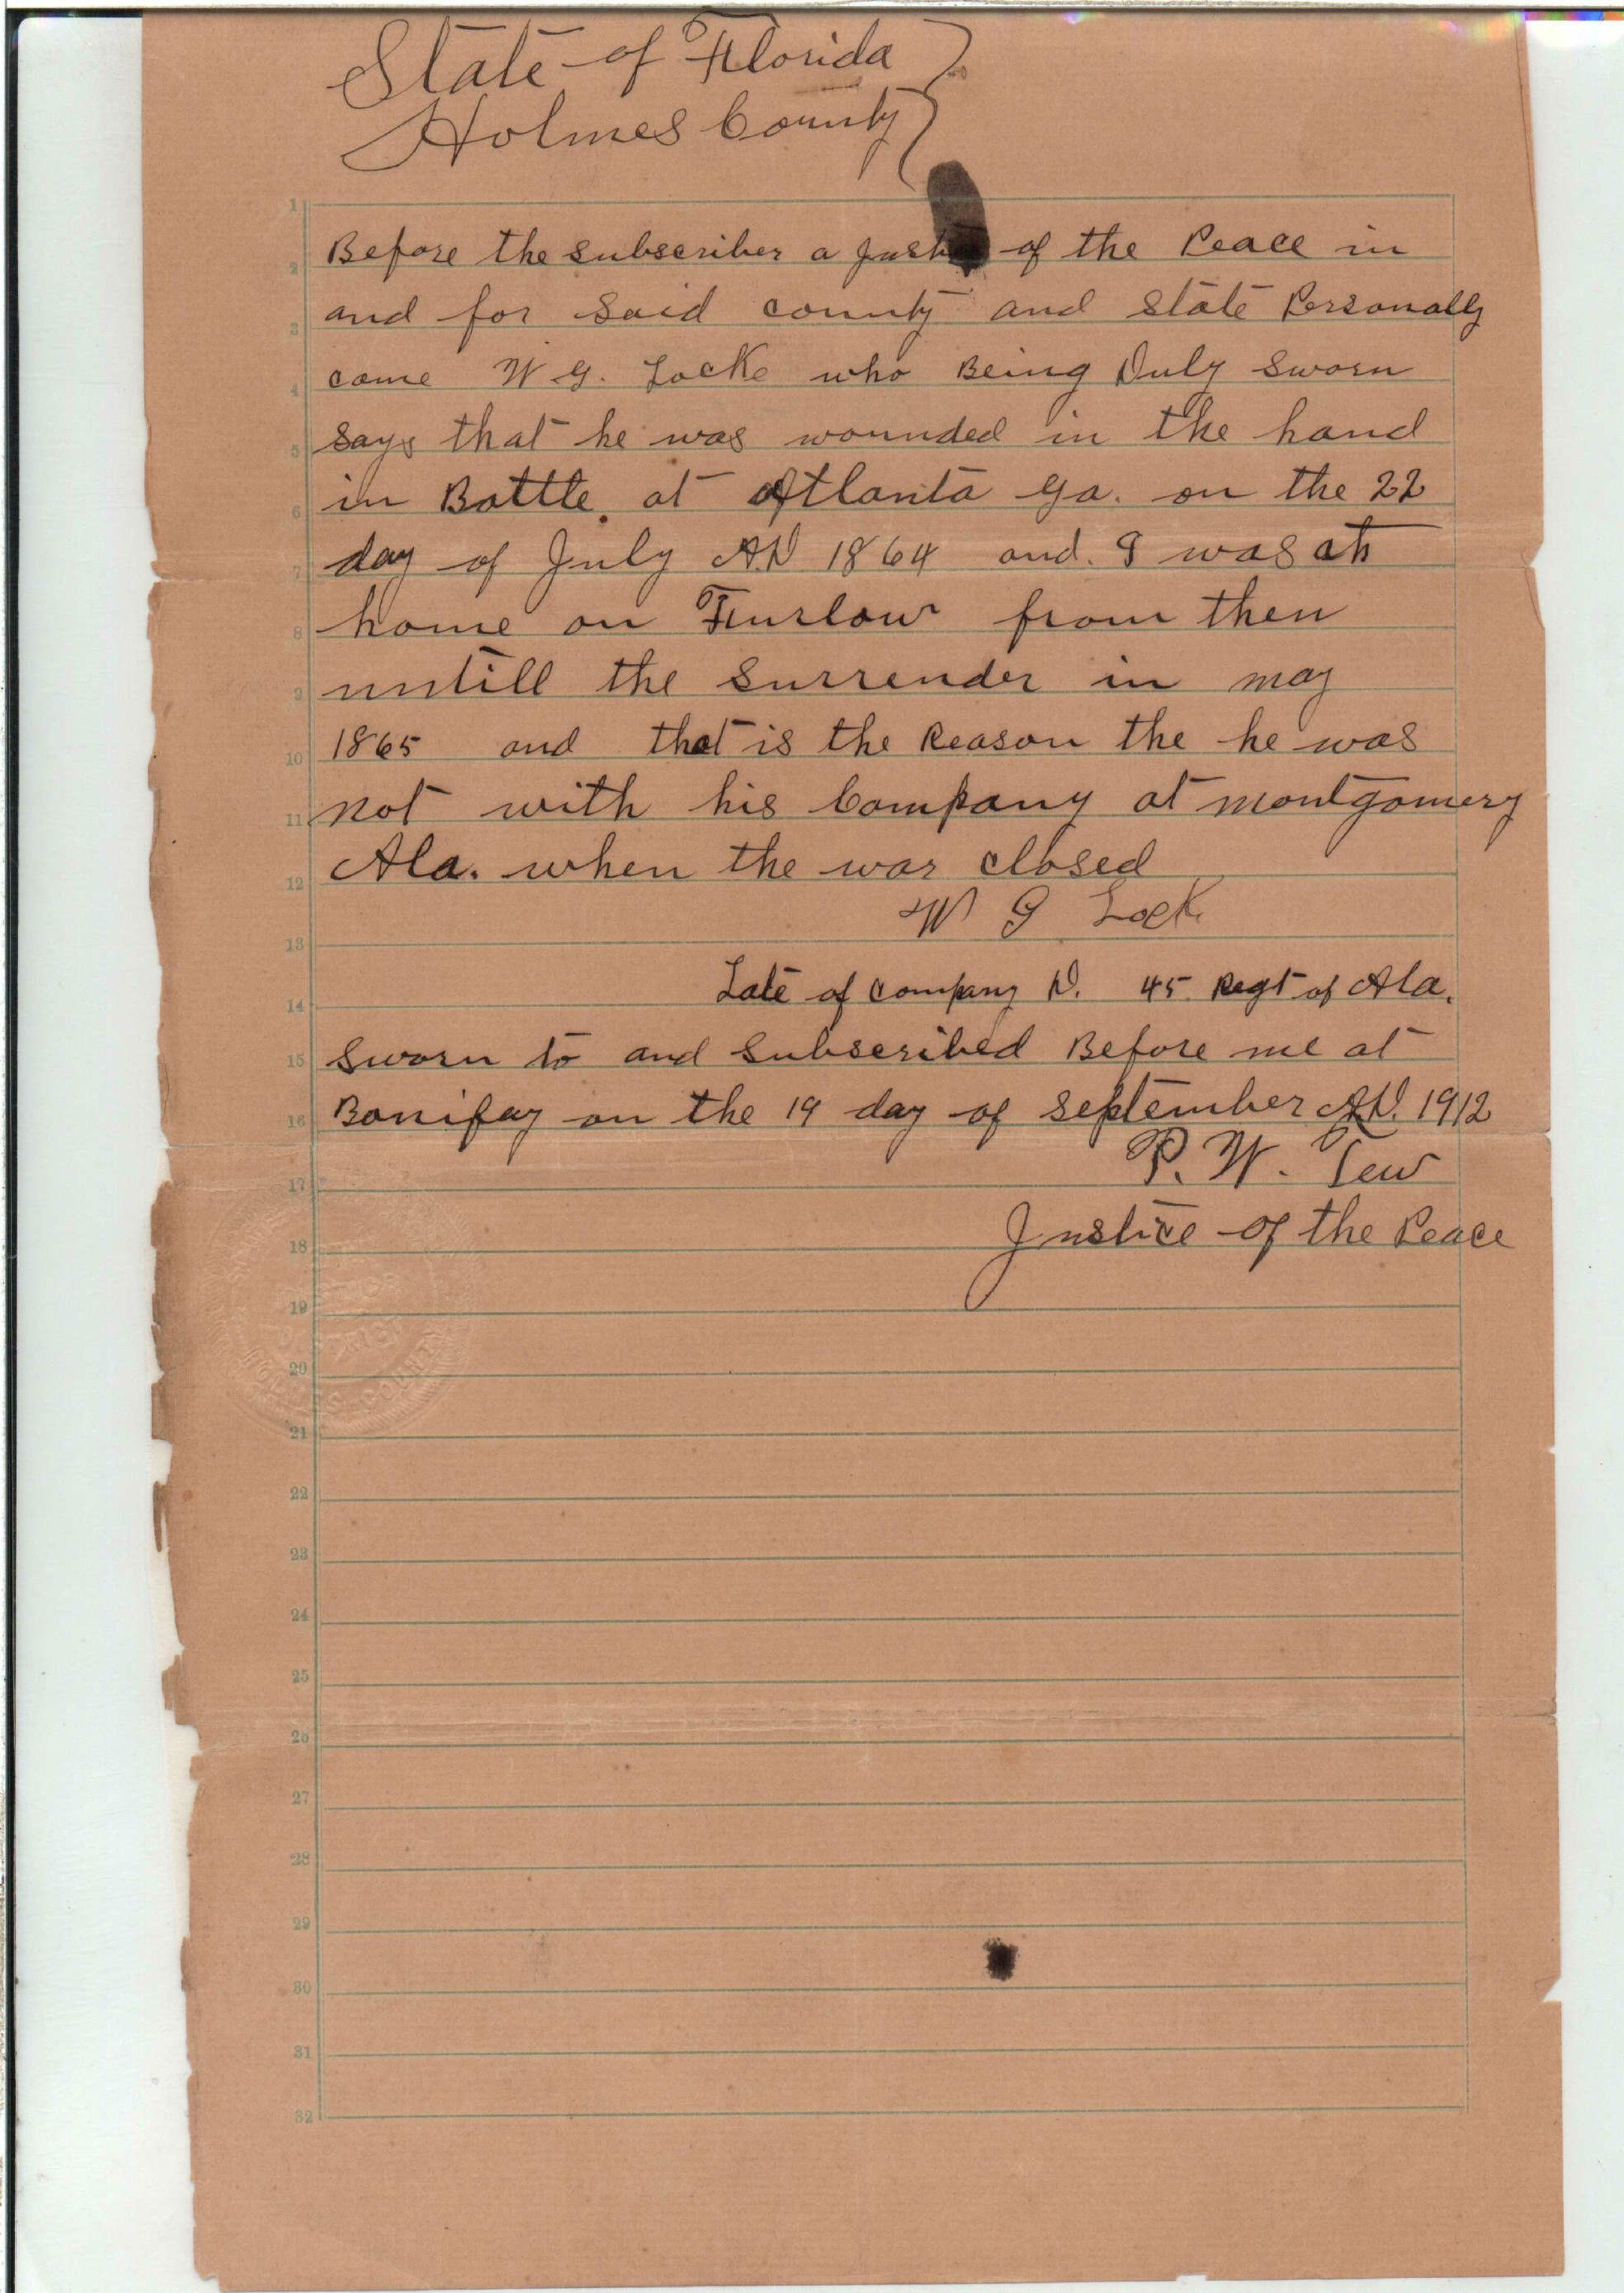 State of Florida
Holmes County
1
2 Before the subscriber a Justice of the Peace in
3 and for said county and state Personally
4 came W. G. Locke who Being Duly sworn
5 says that he was wounded in the hand
6 in Battle at Atlanta Ga. on the 22
7 day of July A.D 1864 and. I was at
8 home on Furlow from then
9 untill the surrender in may
10 1865 and that is the Reason the he was
11 not with his Company at montgomery
12 Ala. when the war closed
W G Lock
13
14 Late of company D. 45 Regt of Ala.
15 sworn to and subscribed Before me at
16 Bonifay on the 19 day of september A.D. 1912
17 P. W. Tew
18 Justice of the Peace
19
20
21
22
23
24
25
26
27
28
29
30
31
32